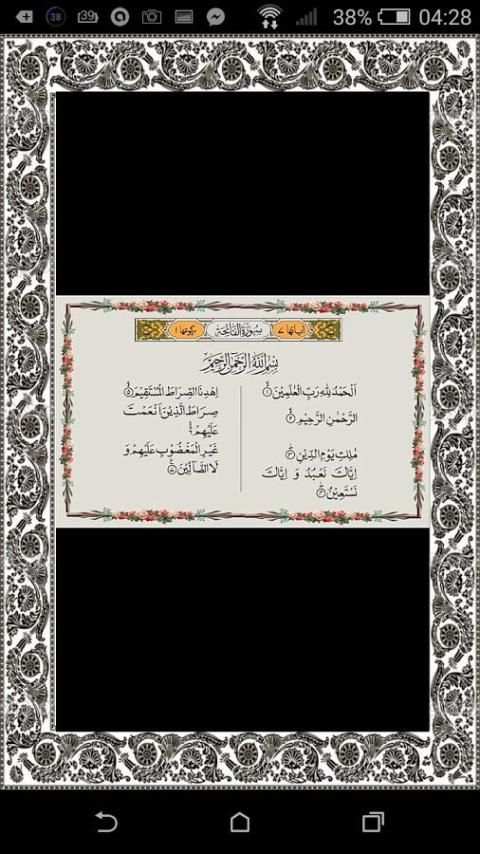 38
39
38%
04:28
اٰیاتھا ٧
سُوْرَةُ الْفَاتِحَةِ
رکوعھا ١
بِسْمِ اللّٰهِ الرَّحْمٰنِ الرَّحِيْمِ
اَلْحَمْدُ لِلّٰهِ رَبِّ الْعٰلَمِيْنَ ١
الرَّحْمٰنِ الرَّحِيْمِ ٢
مٰلِكِ يَوْمِ الدِّيْنِ ٣
اِيَّاكَ نَعْبُدُ وَ اِيَّاكَ
نَسْتَعِيْنُ ٤
اِهْدِنَا الصِّرَاطَ الْمُسْتَقِيْمَ ٥
صِرَاطَ الَّذِيْنَ اَنْعَمْتَ
عَلَيْهِمْ
غَيْرِ الْمَغْضُوْبِ عَلَيْهِمْ وَ
لَا الضَّآلِّيْنَ